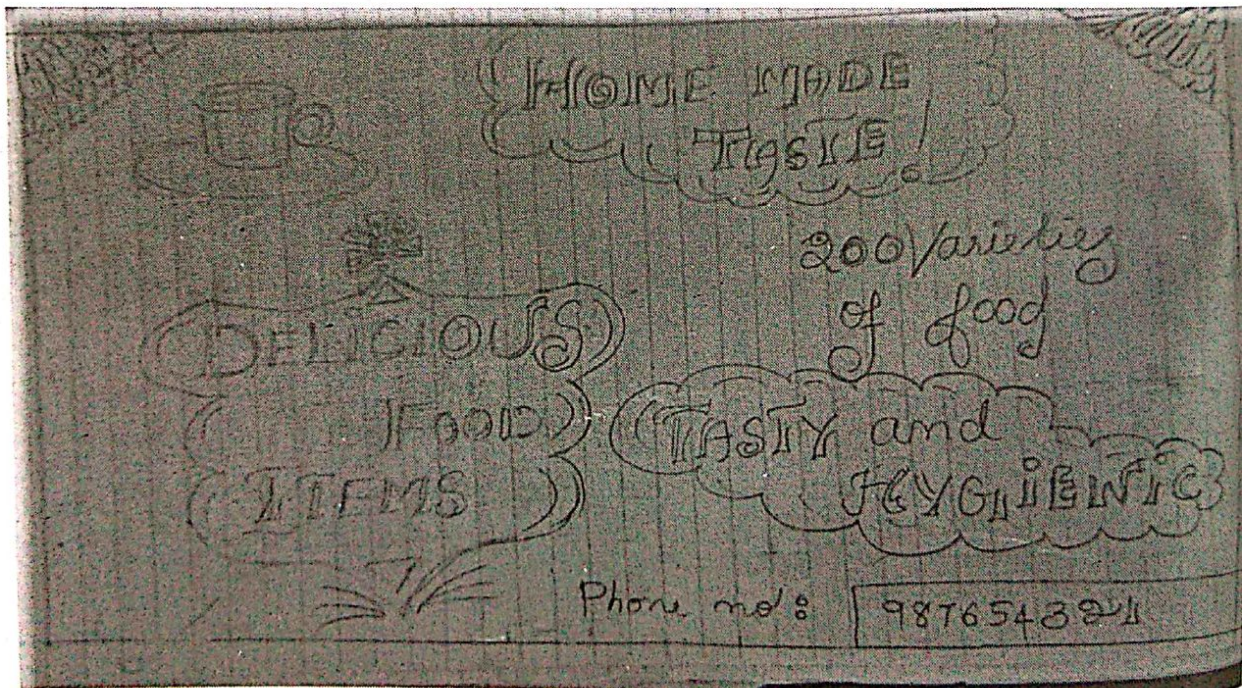 HOME MADE
TASTE!
200 Varieties
of food
DELICIOUS
FOOD
ITEMS
TASTY and
HYGIENIC
Phone no: 9876543221